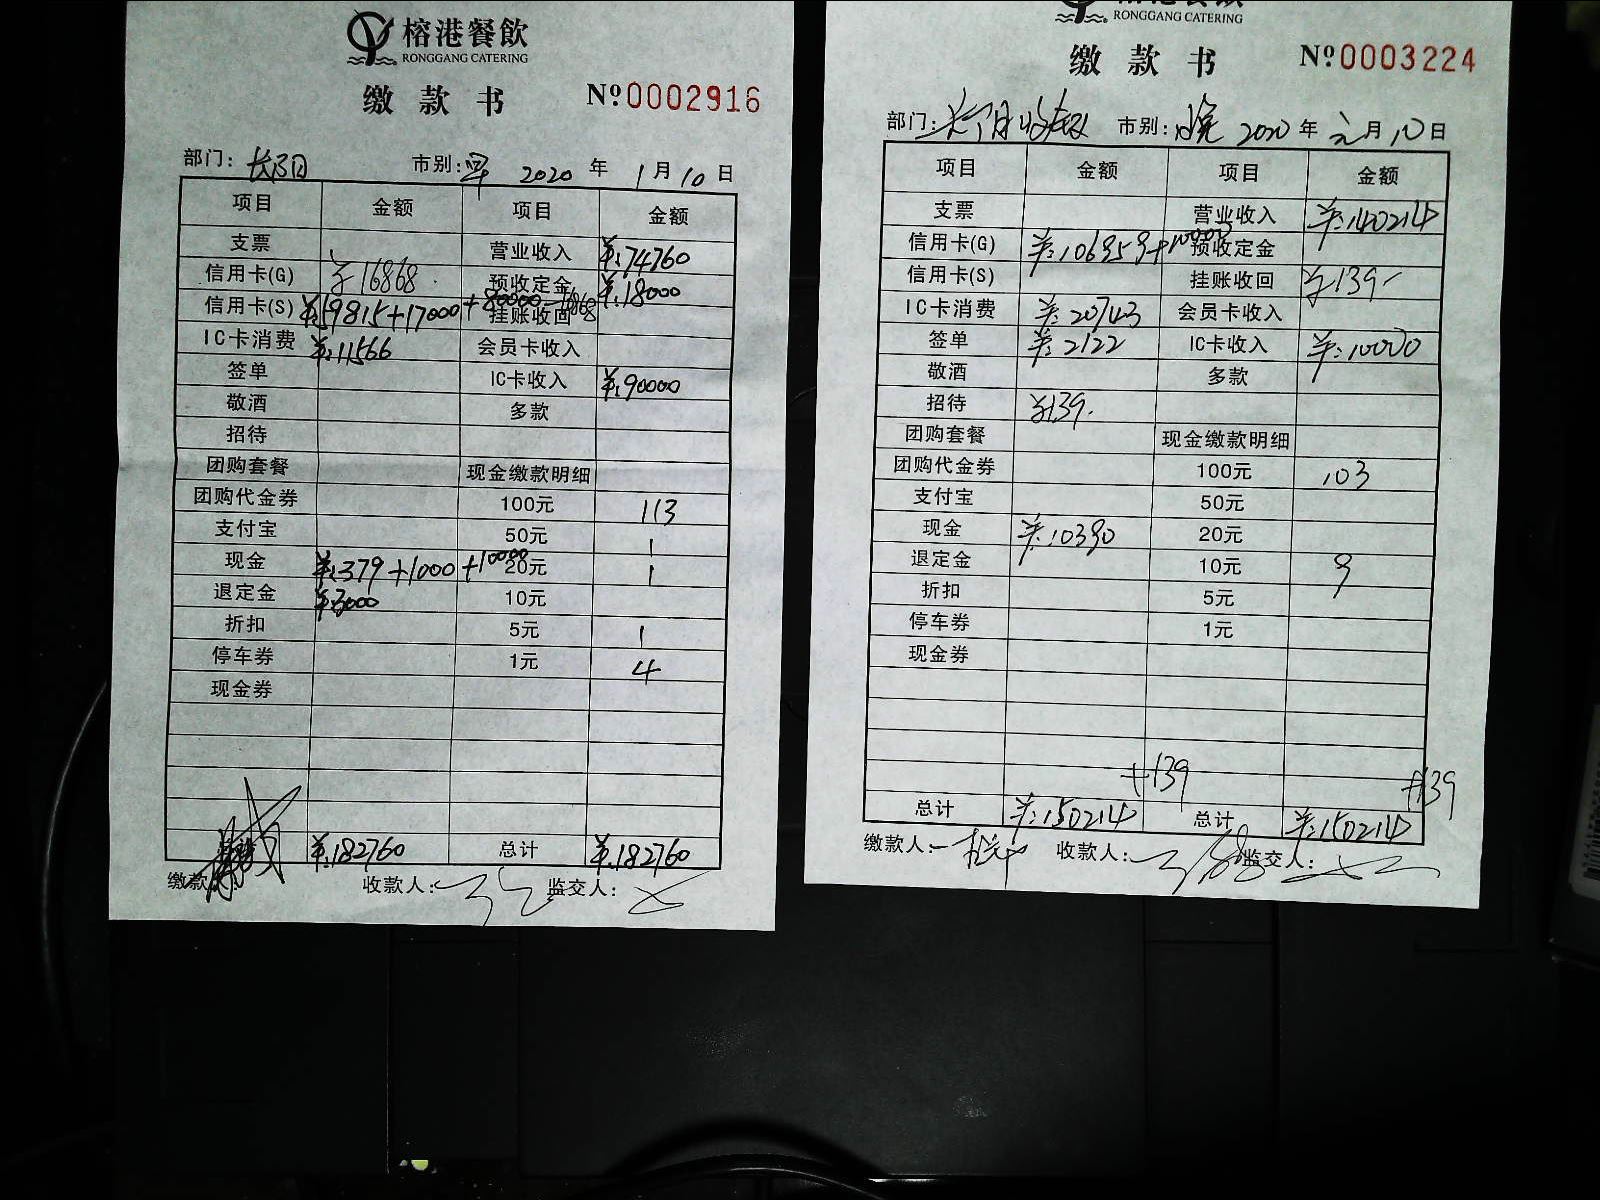 榕港餐飲
RONGGANG CATERING
缴款书
Nº0002916
部门: 市别:早 2020年1月10日
项目 金额 项目 金额
支票 营业收入 ¥:74760
信用卡(G) ¥16868 预收定金 ¥:18000
信用卡(S) ¥:59815+17000+80000-16868 挂账收回
IC卡消费 ¥:11566 会员卡收入
签单 IC卡收入 ¥:90000
敬酒 多款
招待
团购套餐 现金缴款明细
团购代金券 100元 113
支付宝 50元 1
现金 ¥:379+1000+10000 20元 1
退定金 ¥:3000 10元
折扣 5元 1
停车券 1元 4
现金券
¥:182760 总计 ¥:182760
缴款 收款人: 监交人:
榕港餐飲
RONGGANG CATERING
缴款书
Nº0003224
部门: 市别:晚 2020年元月10日
项目 金额 项目 金额
支票 营业收入 ¥:140214
信用卡(G) ¥:106959+10000 预收定金
信用卡(S) 挂账收回 ¥139-
IC卡消费 ¥:20743 会员卡收入
签单 ¥:2122 IC卡收入 ¥:10000
敬酒 多款
招待 ¥139.
团购套餐 现金缴款明细
团购代金券 100元 103
支付宝 50元
现金 ¥:10390 20元
退定金 10元 9
折扣 5元
停车券 1元
现金券
+139 +139
总计 ¥:150214 总计 ¥:150214
缴款人: 收款人: 监交人: